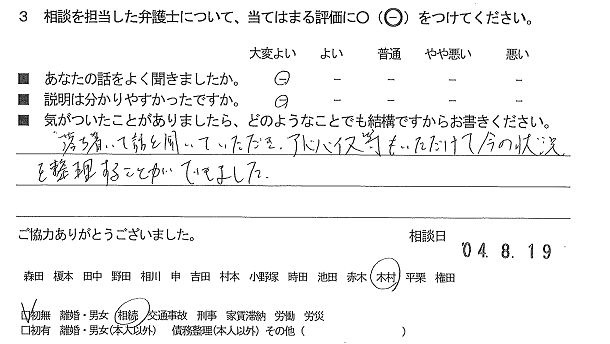 3 相談を担当した弁護士について、当てはまる評価に○(⊖)をつけてください。
大変よい よい 普通 やや悪い 悪い
■ あなたの話をよく聞きましたか。 ⊖ － － － －
■ 説明は分かりやすかったですか。 ⊖ － － － －
■ 気がついたことがありましたら、どのようなことでも結構ですからお書きください。
落ち着いて話を聞いていただき、アドバイス等もいただけて今の状況
を整理することができました。
ご協力ありがとうございました。 相談日 '04.8.19
森田 榎本 田中 野田 相川 申 吉田 村本 小野塚 時田 池田 赤木 木村 平栗 権田
□初無 離婚・男女 相続 交通事故 刑事 家賃滞納 労働 労災
□初有 離婚・男女(本人以外) 債務整理(本人以外) その他 ( )